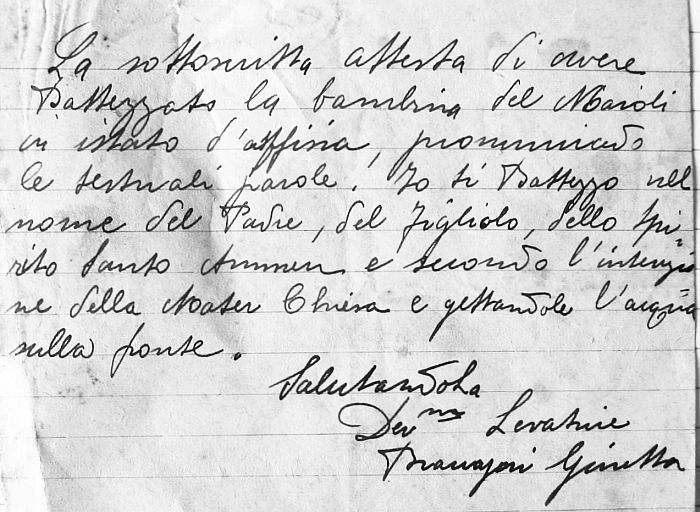 La sottoscritta attesta di avere
Battezzato la bambina del Maioli
in istato d'asfisia, pronunciado
le testuali parole. Io ti Battezzo nel
nome del Padre, del Figliolo, dello Spi-
rito Santo Ammen e secondo l'intenzio
ne della Mater Chiesa e gettandole l'acqua
sulla fonte.
SalutandoLa
Dev ma Levatrice
Ginetta